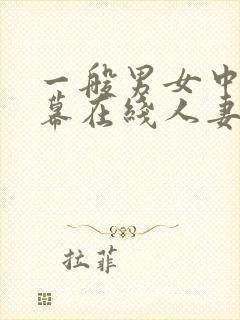 一般男女中
幕在线人妻
拉菲